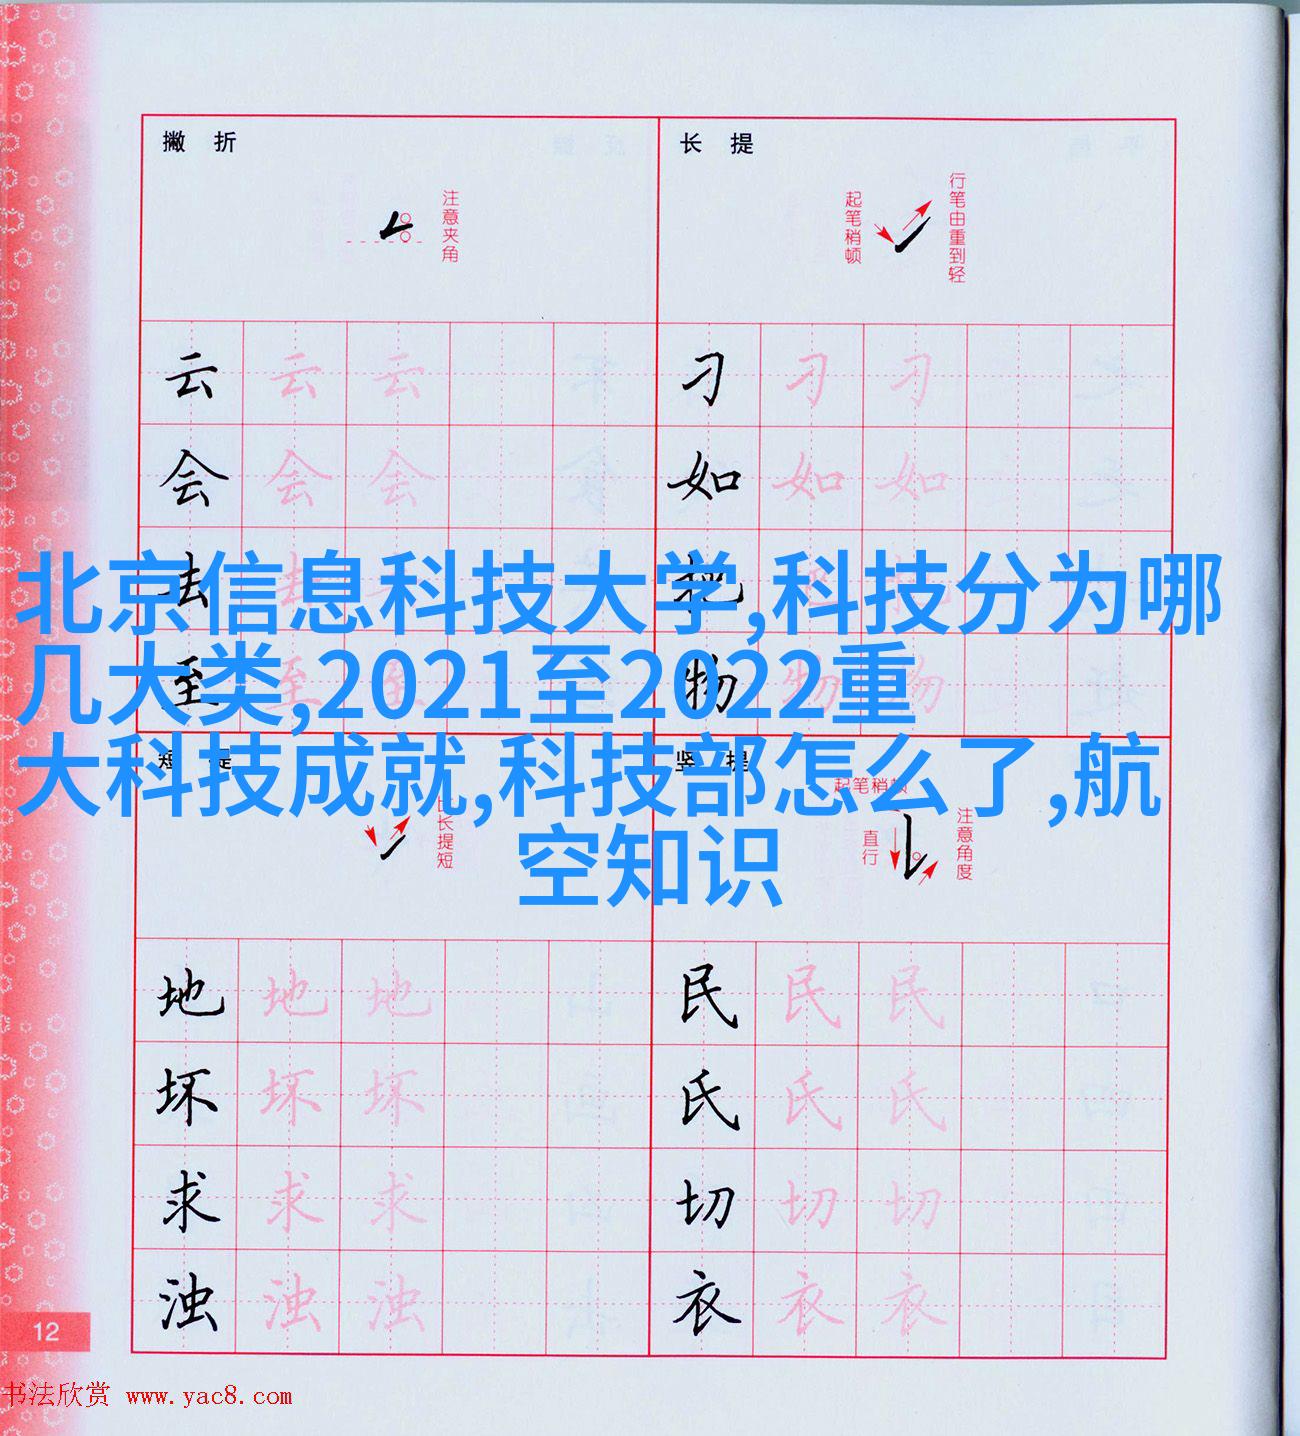 撇 折
注意夹角
长 提
起笔稍顿
行笔由重到轻
云 云 云
会 会 会
去 去 去
至 至 至
刁 刁 刁
如 如 如
把 把 把
物 物 物
北京信息科技大学,科技分为哪
几大类,2021至2022重
大科技成就,科技部怎么了,航
空知识
短 提
比长提短
竖 提
起笔稍顿
直行
注意角度
地 地 地
坏 坏 坏
求 求 求
浊 浊 浊
民 民 民
氏 氏 氏
切 切 切
衣 衣 衣
12
书法欣赏 www.yac8.com